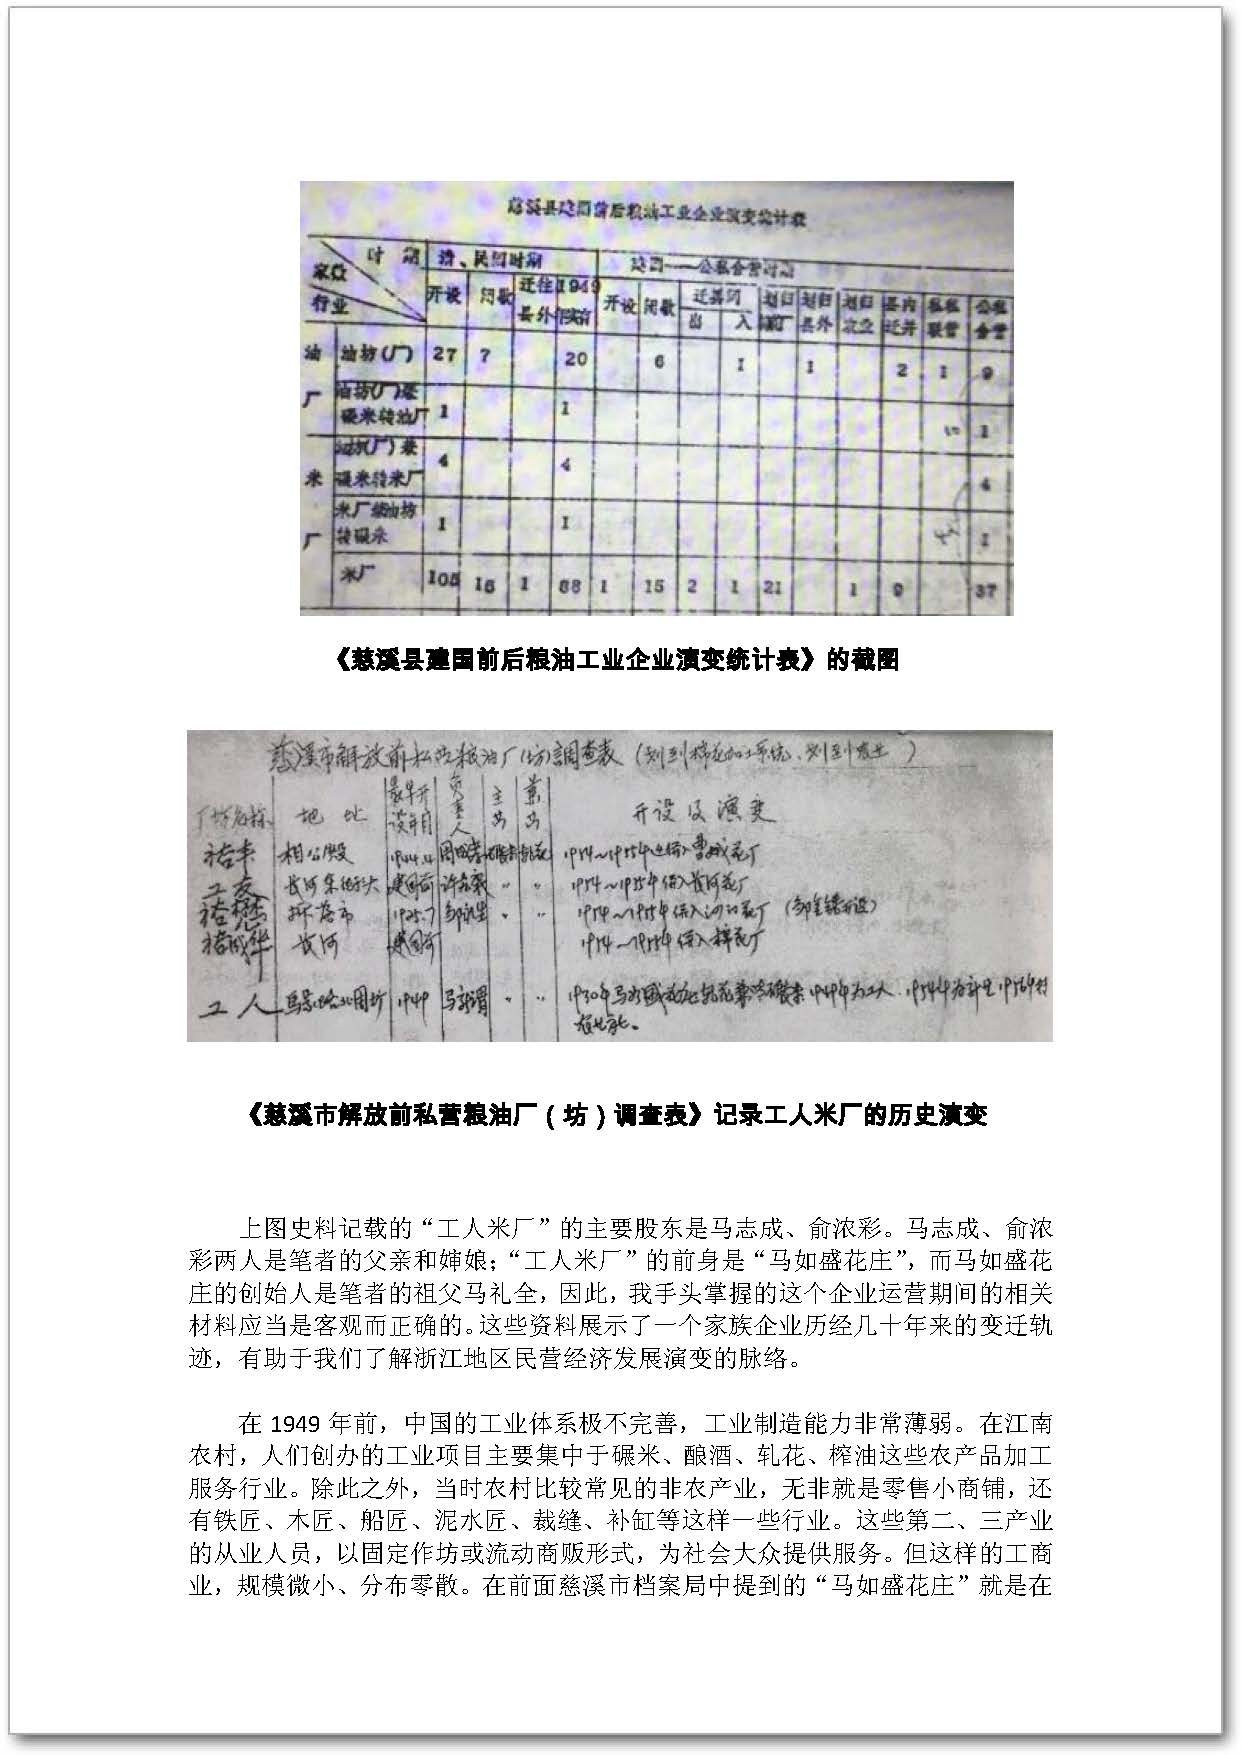 慈溪县建国前后粮油工业企业演变统计表
时 期 清、民国时期 建国——公私合营时期
家数
行业
开设 闭歇 迁往县外 1949年实有 开设 闭歇 迁县间 出 入 划归 划归县外 划归农业 县内迁并 私私联营 公私合营
油厂 油坊(厂) 27 7 20 6 1 1 2 1 9
油坊(厂)兼碾米转油厂 1 1 1
米厂 油坊(厂)兼碾米转米厂 4 4 4
米厂兼油坊转碾米 1 1 1
米厂 105 16 1 88 1 15 2 1 21 1 9 37
《慈溪县建国前后粮油工业企业演变统计表》的截图
慈溪市解放前私营粮油厂(坊)調查表(划到棉花加工系统、划到农业)
厂坊名称 地址 最早开设年月 负责人 主 兼 开设及演变
裕丰 相公殿 1944.4
工友 长河 建国前 1954~1955年 长河花厂
1925.7 1954~1955年
长河 建国前 1954~1955年 棉花厂
工人 1949 1949年为工人
《慈溪市解放前私营粮油厂(坊)调查表》记录工人米厂的历史演变
上图史料记载的“工人米厂”的主要股东是马志成、俞浓彩。马志成、俞浓
彩两人是笔者的父亲和婶娘;“工人米厂”的前身是“马如盛花庄”,而马如盛花
庄的创始人是笔者的祖父马礼全,因此,我手头掌握的这个企业运营期间的相关
材料应当是客观而正确的。这些资料展示了一个家族企业历经几十年来的变迁轨
迹,有助于我们了解浙江地区民营经济发展演变的脉络。
在 1949 年前,中国的工业体系极不完善,工业制造能力非常薄弱。在江南
农村,人们创办的工业项目主要集中于碾米、酿酒、轧花、榨油这些农产品加工
服务行业。除此之外,当时农村比较常见的非农产业,无非就是零售小商铺,还
有铁匠、木匠、船匠、泥水匠、裁缝、补缸等这样一些行业。这些第二、三产业
的从业人员,以固定作坊或流动商贩形式,为社会大众提供服务。但这样的工商
业,规模微小、分布零散。在前面慈溪市档案局中提到的“马如盛花庄”就是在